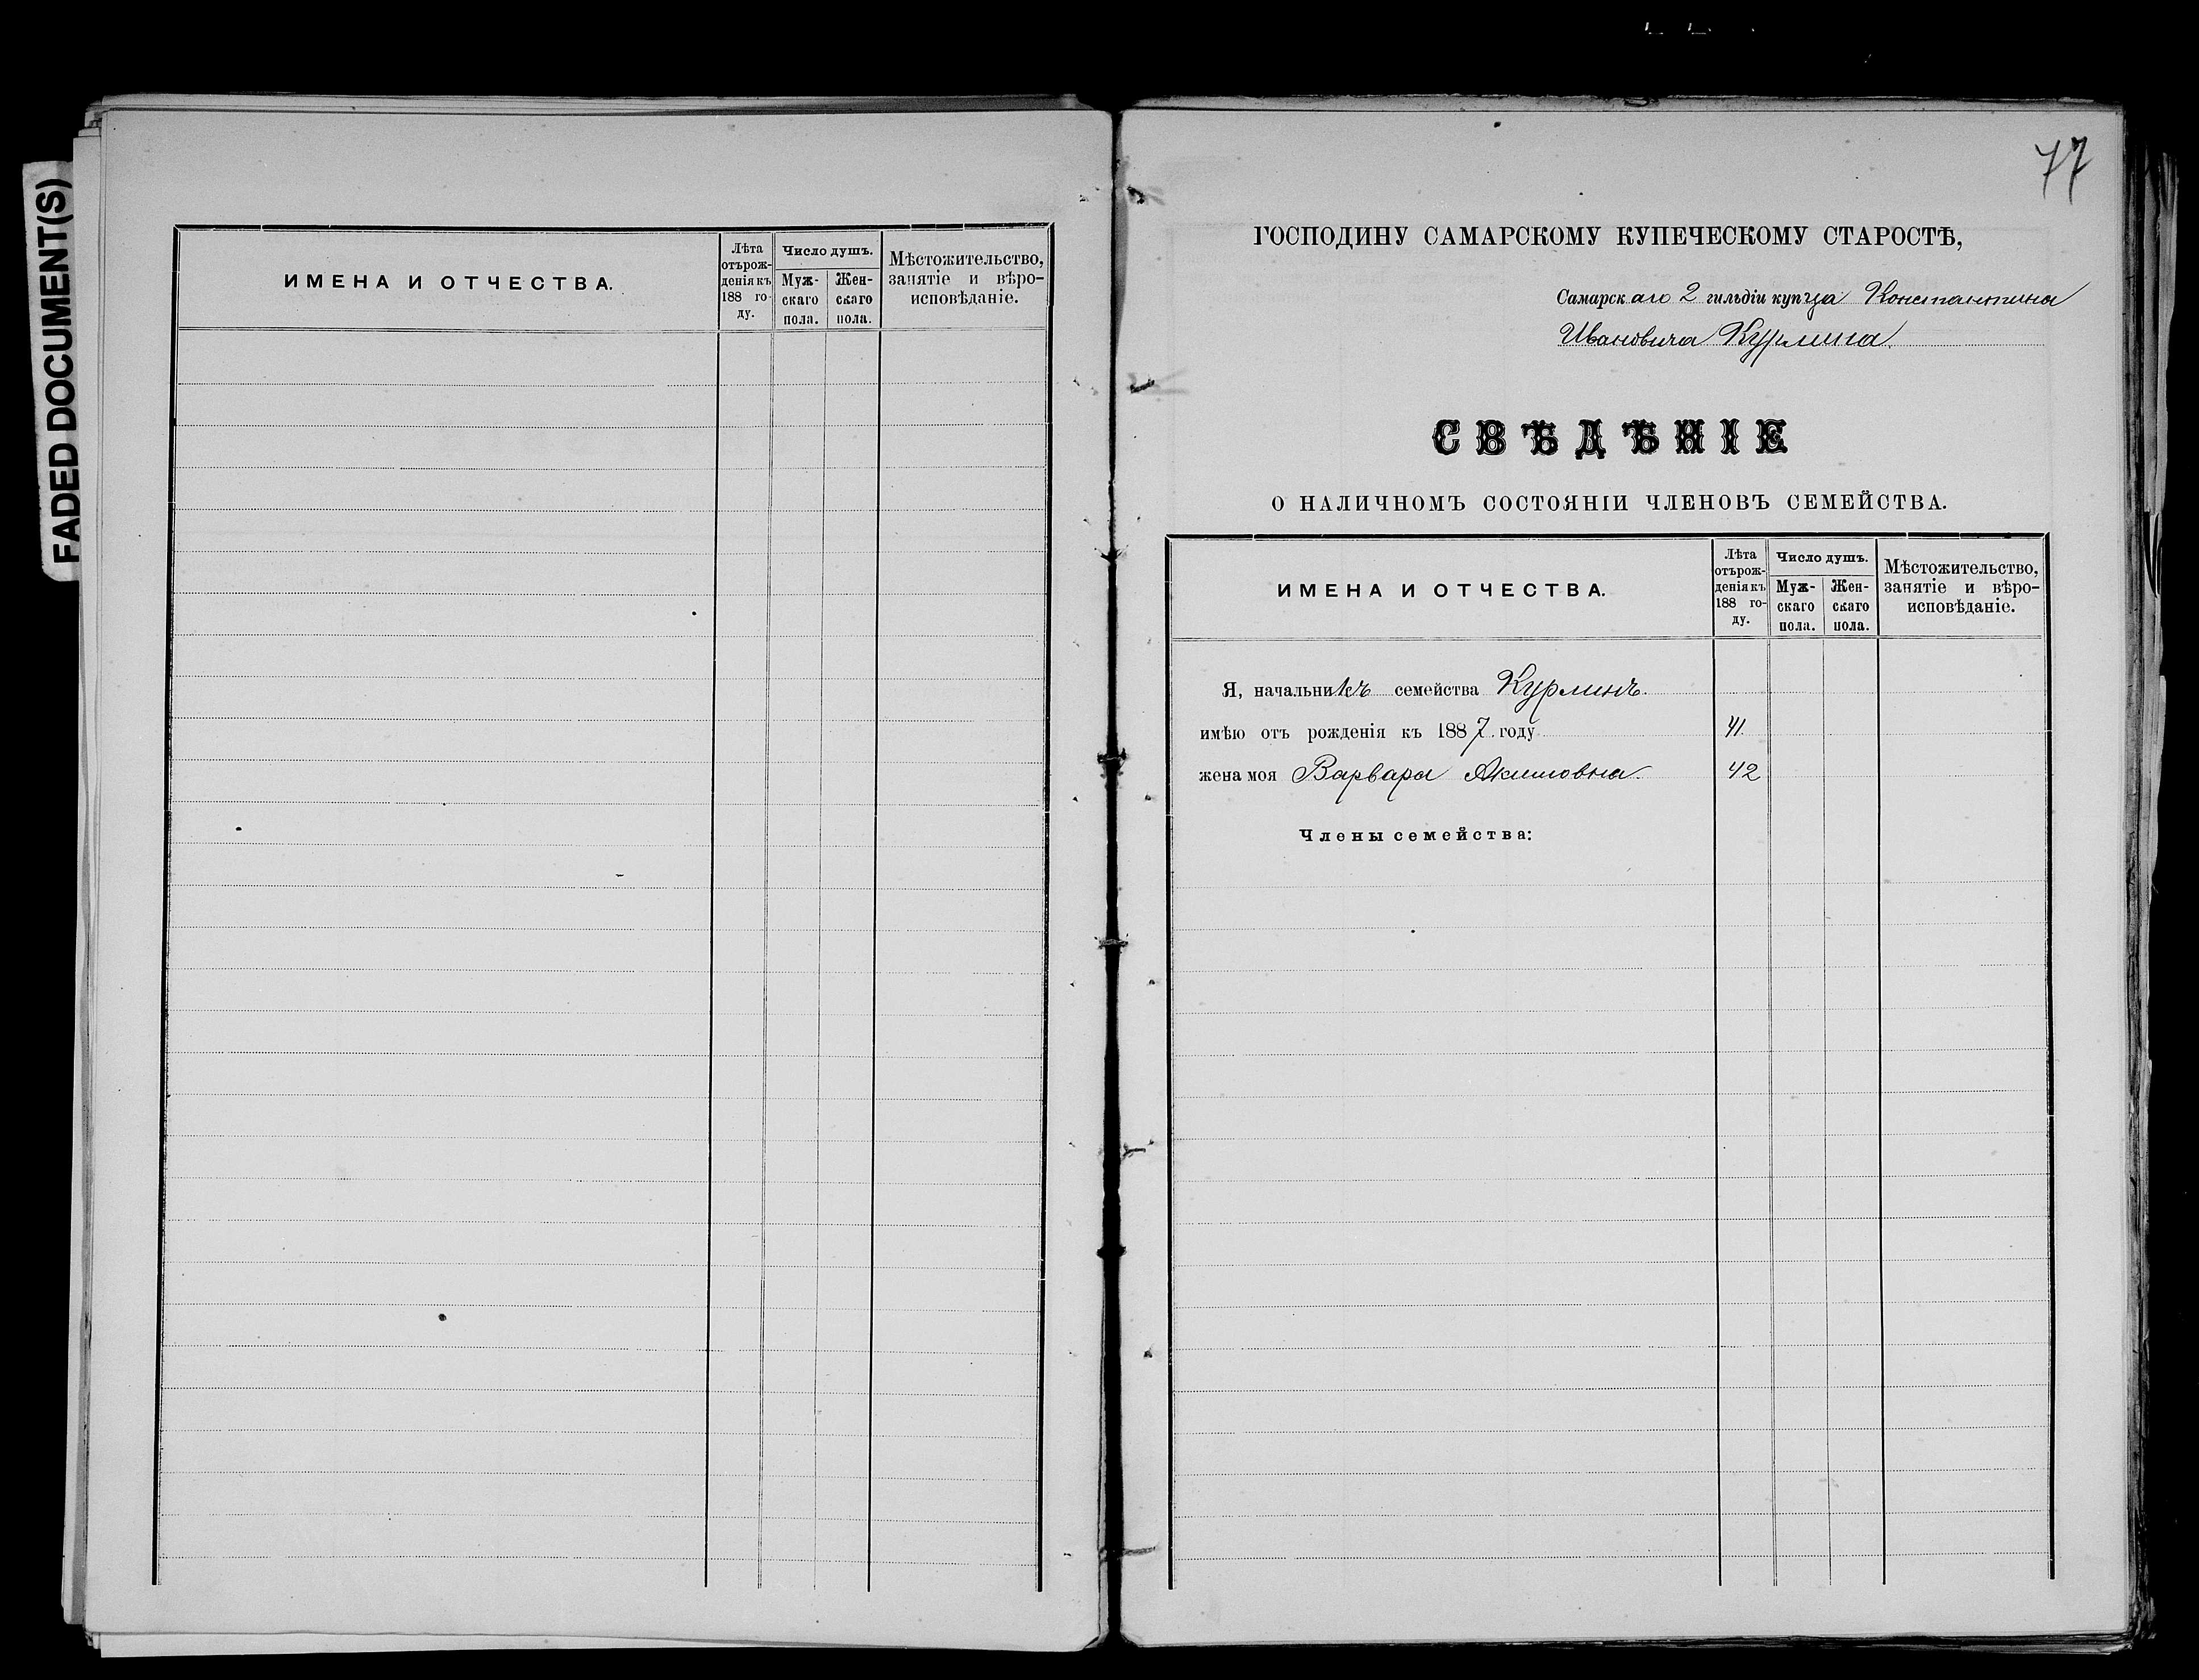 FADED DOCUMENT(S)
ИМЕНА И ОТЧЕСТВА.
Лѣта
отърож-
денія къ
188 го-
ду.
Число душъ.
Муж-
скаго
пола.
Жен-
скаго
пола.
Мѣстожительство,
занятіе и вѣро-
исповѣданіе.
77
ГОСПОДИНУ САМАРСКОМУ КУПЕЧЕСКОМУ СТАРОСТѢ,
Самарскаго 2 гильдіи купца Константина
Ивановича Курлина.
СВѢДѢНІЕ
О НАЛИЧНОМЪ СОСТОЯНІИ ЧЛЕНОВЪ СЕМЕЙСТВА.
ИМЕНА И ОТЧЕСТВА.
Лѣта
отърож-
денія къ
188 го-
ду.
Число душъ.
Муж-
скаго
пола.
Жен-
скаго
пола.
Мѣстожительство,
занятіе и вѣро-
исповѣданіе.
Я, начальникъ семейства Курлинъ.
имѣю отъ рожденія къ 1887 году 41
жена моя Варвара Акимовна. 42
Члены семейства: